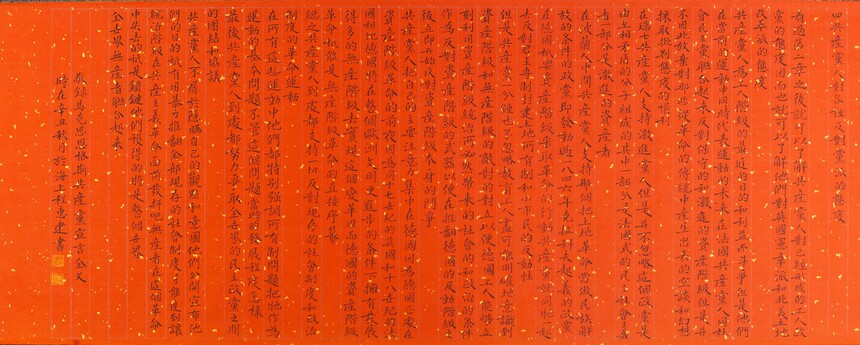 四共產黨人對各種反對黨派的態度
看過第二章之後就可以了解共產黨人對已經形成的工人政
黨的態度因而也就可以了解他們對英國憲章派和北美土地
改革派的態度
共產黨人為工人階級的最近的目的和利益而鬥爭但是他們
在當前的運動中同時代表運動的未來在法國共產黨人同社
會民主黨聯合起來反對保守的和激進的資產階級但是並
不因此放棄對那些從革命的傳統中產生出來的空談和幻想
採取批判態度的權利
在瑞士共產黨人支持激進黨人但是並不忽略這個政黨是
由互相矛盾的分子組成的其中一部分是法國式的民主社會主義
者一部分是激進的資產者
在波蘭人中間共產黨人支持那個把土地革命當做民族解
放的條件的政黨即發動過一八四六年克拉科夫起義的政黨
在德國只要資產階級採取革命的行動共產黨就同它一起
去反對君主專制封建土地所有制和小市民的反動性
但是共產黨一分鐘也不忽略教育工人盡可能明確地意識到
資產階級和無產階級的敵對的對立以便德國工人能夠立
刻利用資產階級統治所必然帶來的社會的和政治的條件
作為反對資產階級的武器以便在推翻德國的反動階級之
後立即開始反對資產階級本身的鬥爭
共產黨人把自己的主要注意力集中在德國因為德國正處在
資產階級革命的前夜因為同十七世紀的英國和十八世紀的法
國相比德國將在整個歐洲文明更進步的條件下擁有發展
得多的無產階級去實現這個變革因而德國的資產階級
革命只能是無產階級革命的直接序幕
總之共產黨人到處都支持一切反對現存的社會制度和政治
制度的革命運動
在所有這些運動中他們都特別強調所有制問題把它作為
運動的基本問題不管這個問題當時的發展程度怎樣
最後共產黨人到處都努力爭取全世界的民主政黨之間
的團結和協議
共產黨人不屑於隱瞞自己的觀點和意圖他們公開宣布他
們的目的只有用暴力推翻全部現存的社會制度才能達到讓
統治階級在共產主義革命面前發抖吧無產者在這個革命
中失去的只是鎖鏈他們獲得的將是整個世界
全世界無產者聯合起來
敬錄馬克思恩格斯共產黨宣言全文
時在辛丑秋月於海上程忠建書